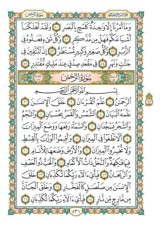 وَمَآ أَمْرُنَآ إِلَّا وَٰحِدَةٌ كَلَمْحٍۭ بِٱلْبَصَرِ وَلَقَدْ أَهْلَكْنَآ
أَشْيَاعَكُمْ فَهَلْ مِن مُّدَّكِرٍ وَكُلُّ شَىْءٍ فَعَلُوهُ فِى
ٱلزُّبُرِ وَكُلُّ صَغِيرٍ وَكَبِيرٍ مُّسْتَطَرٌ إِنَّ ٱلْمُتَّقِينَ فِى
جَنَّٰتٍ وَنَهَرٍ فِى مَقْعَدِ صِدْقٍ عِندَ مَلِيكٍ مُّقْتَدِرٍۭ
سُورَةُ الرَّحْمٰن
بِسْمِ ٱللَّهِ ٱلرَّحْمَٰنِ ٱلرَّحِيمِ
ٱلرَّحْمَٰنُ عَلَّمَ ٱلْقُرْءَانَ خَلَقَ ٱلْإِنسَٰنَ
عَلَّمَهُ ٱلْبَيَانَ ٱلشَّمْسُ وَٱلْقَمَرُ بِحُسْبَانٍ وَٱلنَّجْمُ
وَٱلشَّجَرُ يَسْجُدَانِ وَٱلسَّمَآءَ رَفَعَهَا وَوَضَعَ ٱلْمِيزَانَ
أَلَّا تَطْغَوْا۟ فِى ٱلْمِيزَانِ وَأَقِيمُوا۟ ٱلْوَزْنَ بِٱلْقِسْطِ
وَلَا تُخْسِرُوا۟ ٱلْمِيزَانَ وَٱلْأَرْضَ وَضَعَهَا لِلْأَنَامِ
فِيهَا فَٰكِهَةٌ وَٱلنَّخْلُ ذَاتُ ٱلْأَكْمَامِ وَٱلْحَبُّ ذُو ٱلْعَصْفِ
وَٱلرَّيْحَانُ فَبِأَىِّ ءَالَآءِ رَبِّكُمَا تُكَذِّبَانِ خَلَقَ
ٱلْإِنسَٰنَ مِن صَلْصَٰلٍ كَٱلْفَخَّارِ وَخَلَقَ ٱلْجَآنَّ
مِن مَّارِجٍ مِّن نَّارٍ فَبِأَىِّ ءَالَآءِ رَبِّكُمَا تُكَذِّبَانِ
٥٣١